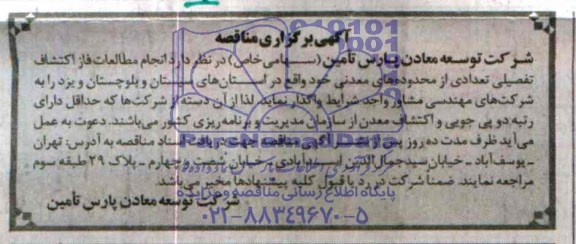 آگهی برگزاری مناقصه
شرکت توسعه معادن پارس تأمین (سهامی خاص) در نظر دارد انجام مطالعات فاز اکتشاف
تفصیلی تعدادی از محدوده‌های معدنی خود واقع در استان‌های سیستان و بلوچستان و یزد را به
شرکت‌های مهندسی مشاور واجد شرایط واگذار نماید. لذا از آن دسته از شرکت‌ها که حداقل دارای
رتبه دو پی جویی و اکتشاف معدن از سازمان مدیریت و برنامه‌ریزی کشور می‌باشند. دعوت به عمل
می‌آید ظرف مدت ده روز پس از آگهی مناقصه جهت دریافت اسناد مناقصه به آدرس: تهران
ـ یوسف‌آباد ـ خیابان سیدجمال‌الدین اسدآبادی ـ خیابان شصت و چهارم ـ پلاک ۲۹ طبقه سوم
مراجعه نمایند. ضمناً شرکت در رد یا قبول کلیه پیشنهادها مخیر می‌باشد.
شرکت توسعه معادن پارس تأمین
پایگاه اطلاع رسانی مناقصه و مزایده
۰۲۱-۸۸۳۴۹۶۷۰-۵